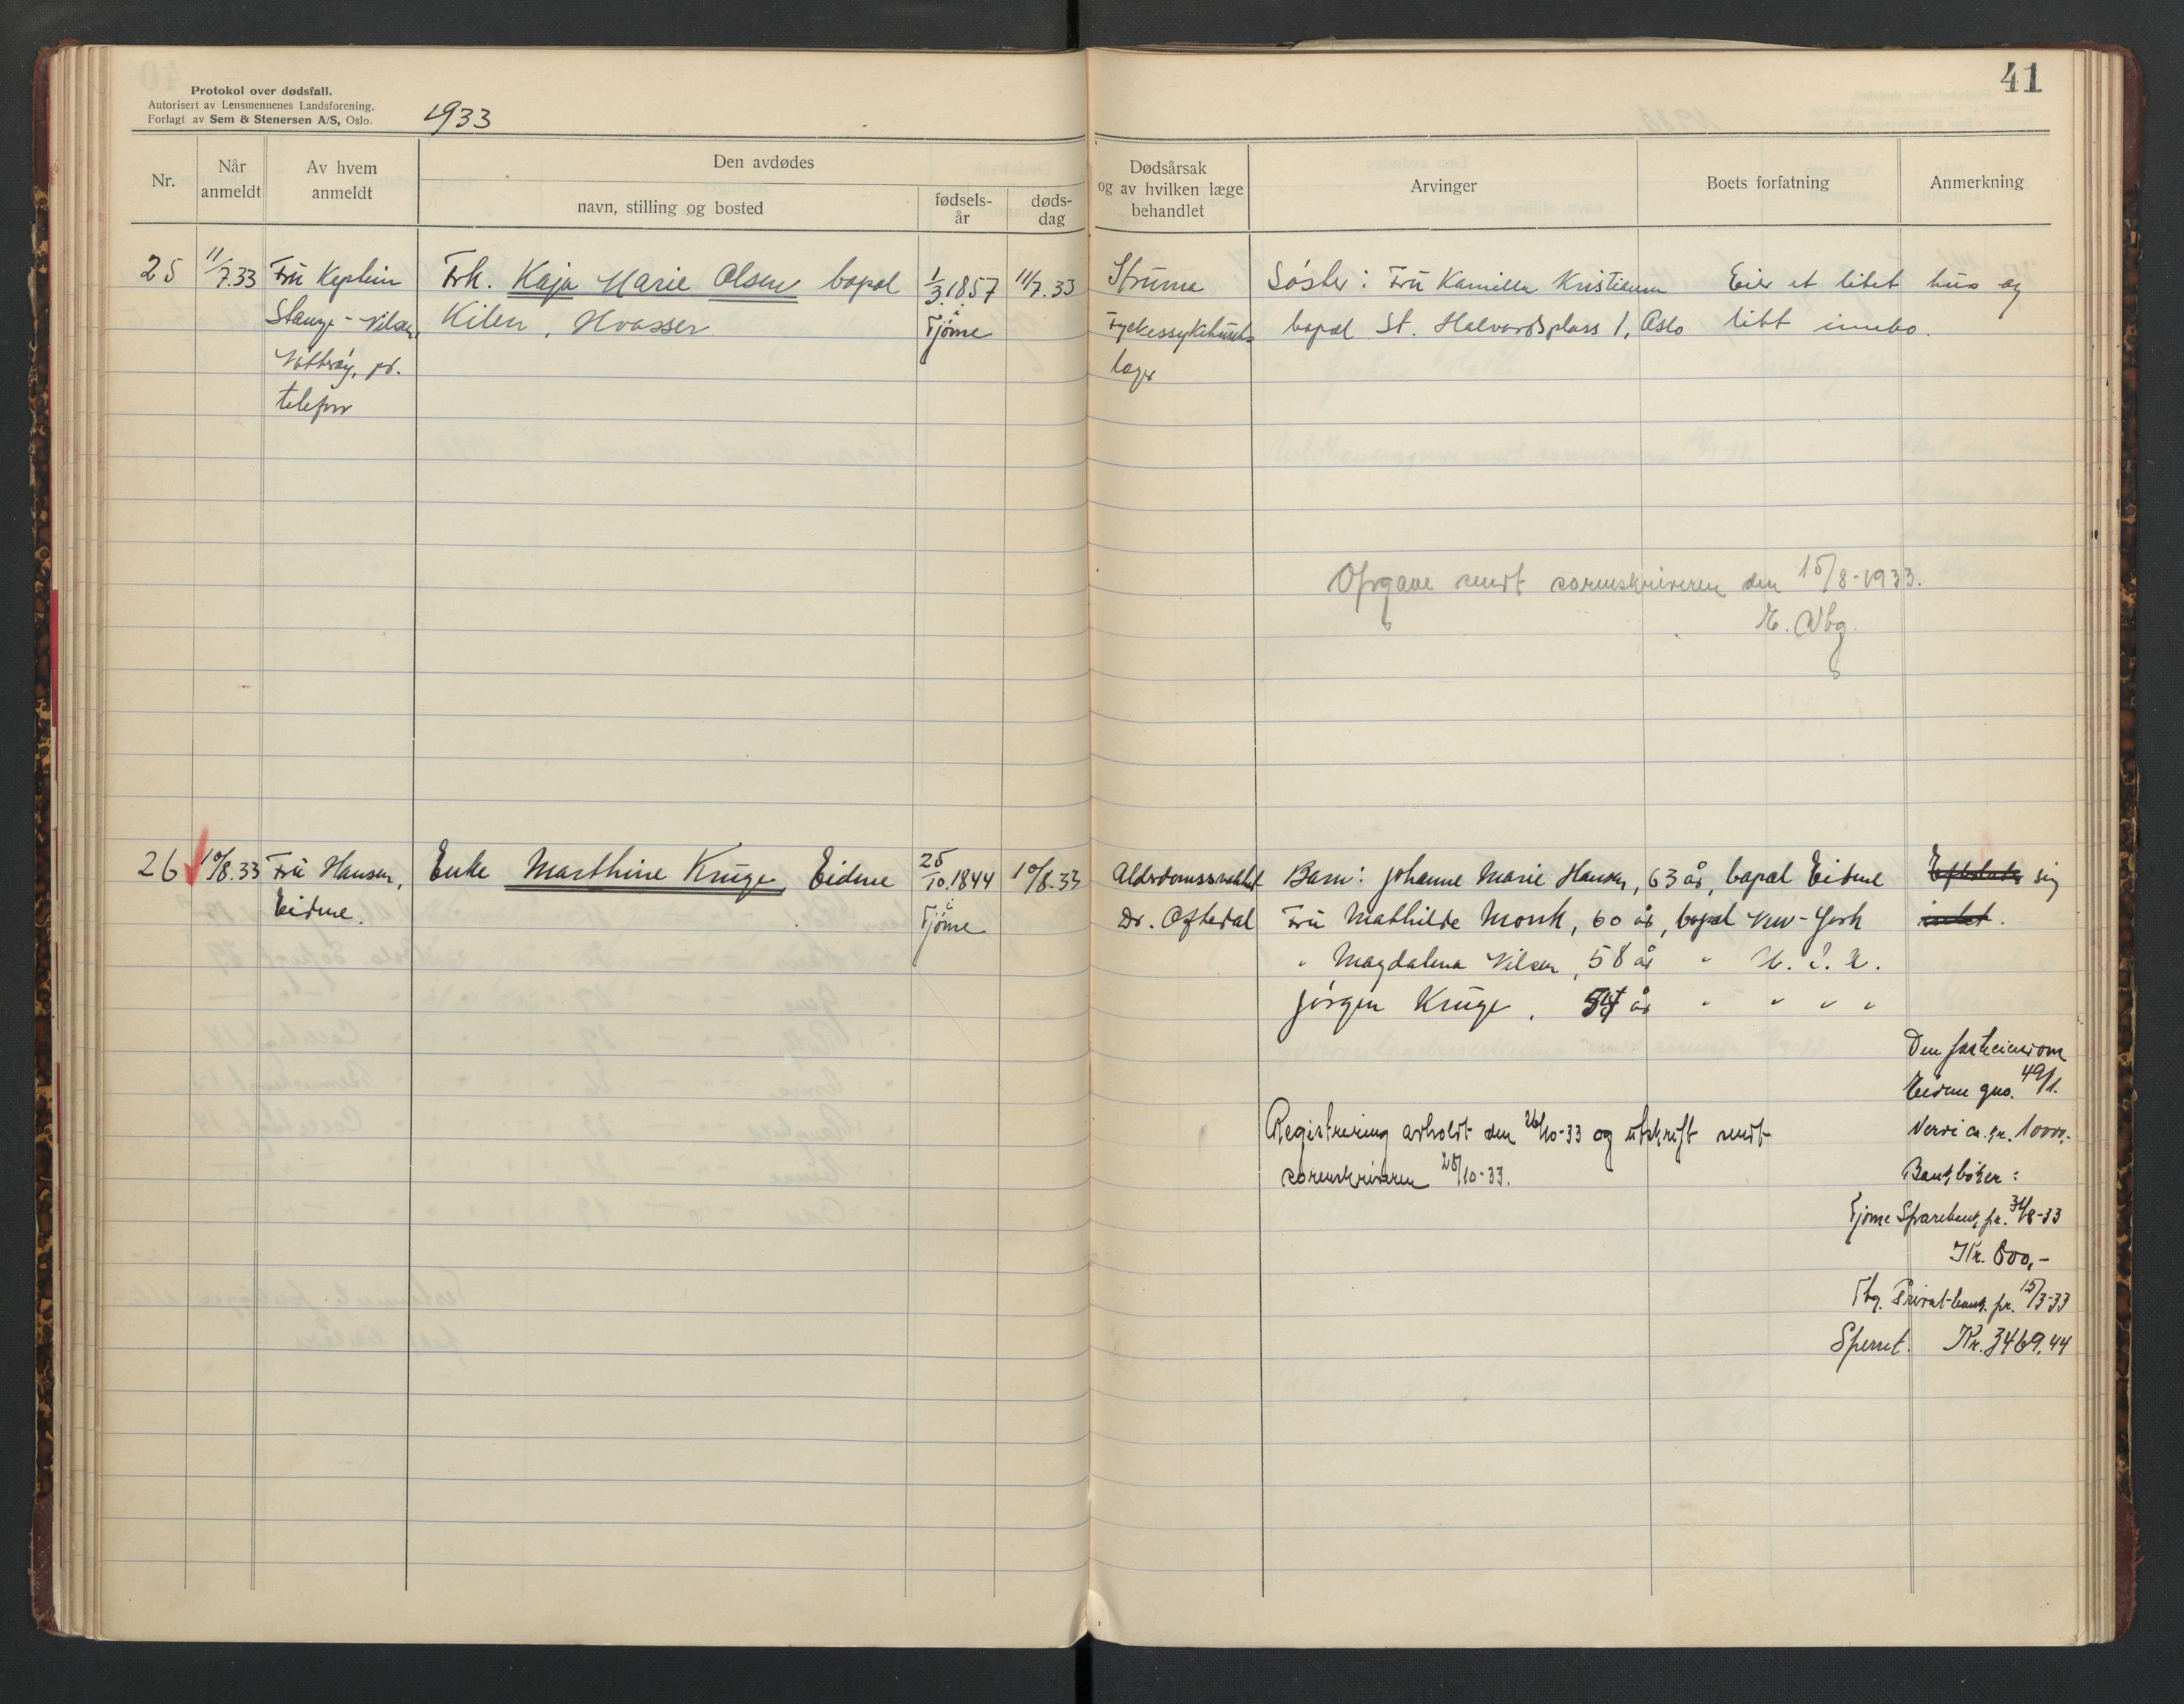 Protokol over dødsfall.
Autorisert av Lensmennenes Landsforening.
Forlagt av Sem & Stenersen A/S, Oslo.
1933
41
Nr.
Når anmeldt
Av hvem anmeldt
Den avdødes
navn, stilling og bosted
fødsels-år
døds-dag
Dødsårsak og av hvilken læge behandlet
Arvinger
Boets forfatning
Anmerkning
25 11/7.33 Fru Kaptein Frk. Kaja Marie Olsen bopæl 1/3.1857 11/7.33 Struma Søster: Fru Kamilla Kristiansen Eier et litet hus og
Stange-Nilsen, Kilen, Hvasser i Tjøme bopæl St. Halvardsplass 1, Oslo litt innbo.
Nøtterøy, pr. læge
telefon
Opgave sendt sorenskriveren den 15/8-1933.
26 10/8.33 Fru Hansen, Enke Marthine Krüge, Eidene 25/10.1844 10/8.33 Alderdomssvakhet Barn: Johanne Marie Hansen, 63 år, bopæl Eidene Efterlater sig
Eidene. i Tjøme Dr. Oftedal Fru Mathilde Monk, 60 år, bopæl New-York intet.
" Magdalena Nilsen, 58 år "
Jørgen Krüge, år " " " "
Den faste eiendom
Eidene gno. 49/1.
Verdi ca. kr. 10000,-
Registrering avholdt den 26/10-33 og utskrift sendt
sorenskriveren 28/10-33.
Bankbøker:
Tjøme Sparebank pr. 31/8-33
Kr. 800,-
Tbg. Privatbank pr. 15/3-33
Sperret. Kr. 3469,44